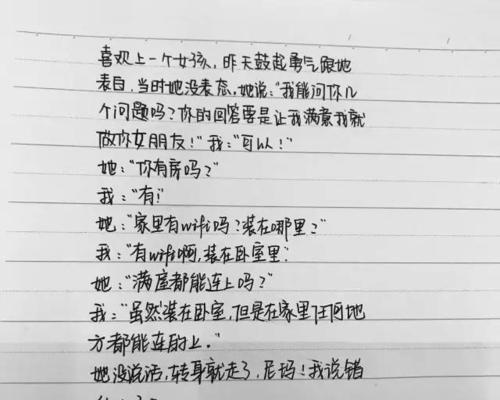 喜欢上一个女孩，昨天鼓起勇气跟她
表白，当时她没表态，她说："我能问你几
个问题吗？你的回答要是让我满意我就
做你女朋友！"我："可以！"
她："你有房吗？"
我："有！"
她："家里有wifi吗？装在哪里？"
我："有wifi啊，装在卧室里"
她："满屋都能连上吗？"
我："虽然装在卧室，但是在家里任何地
方都能连的上。"
她没说话，转身就走了，尼玛！我说错